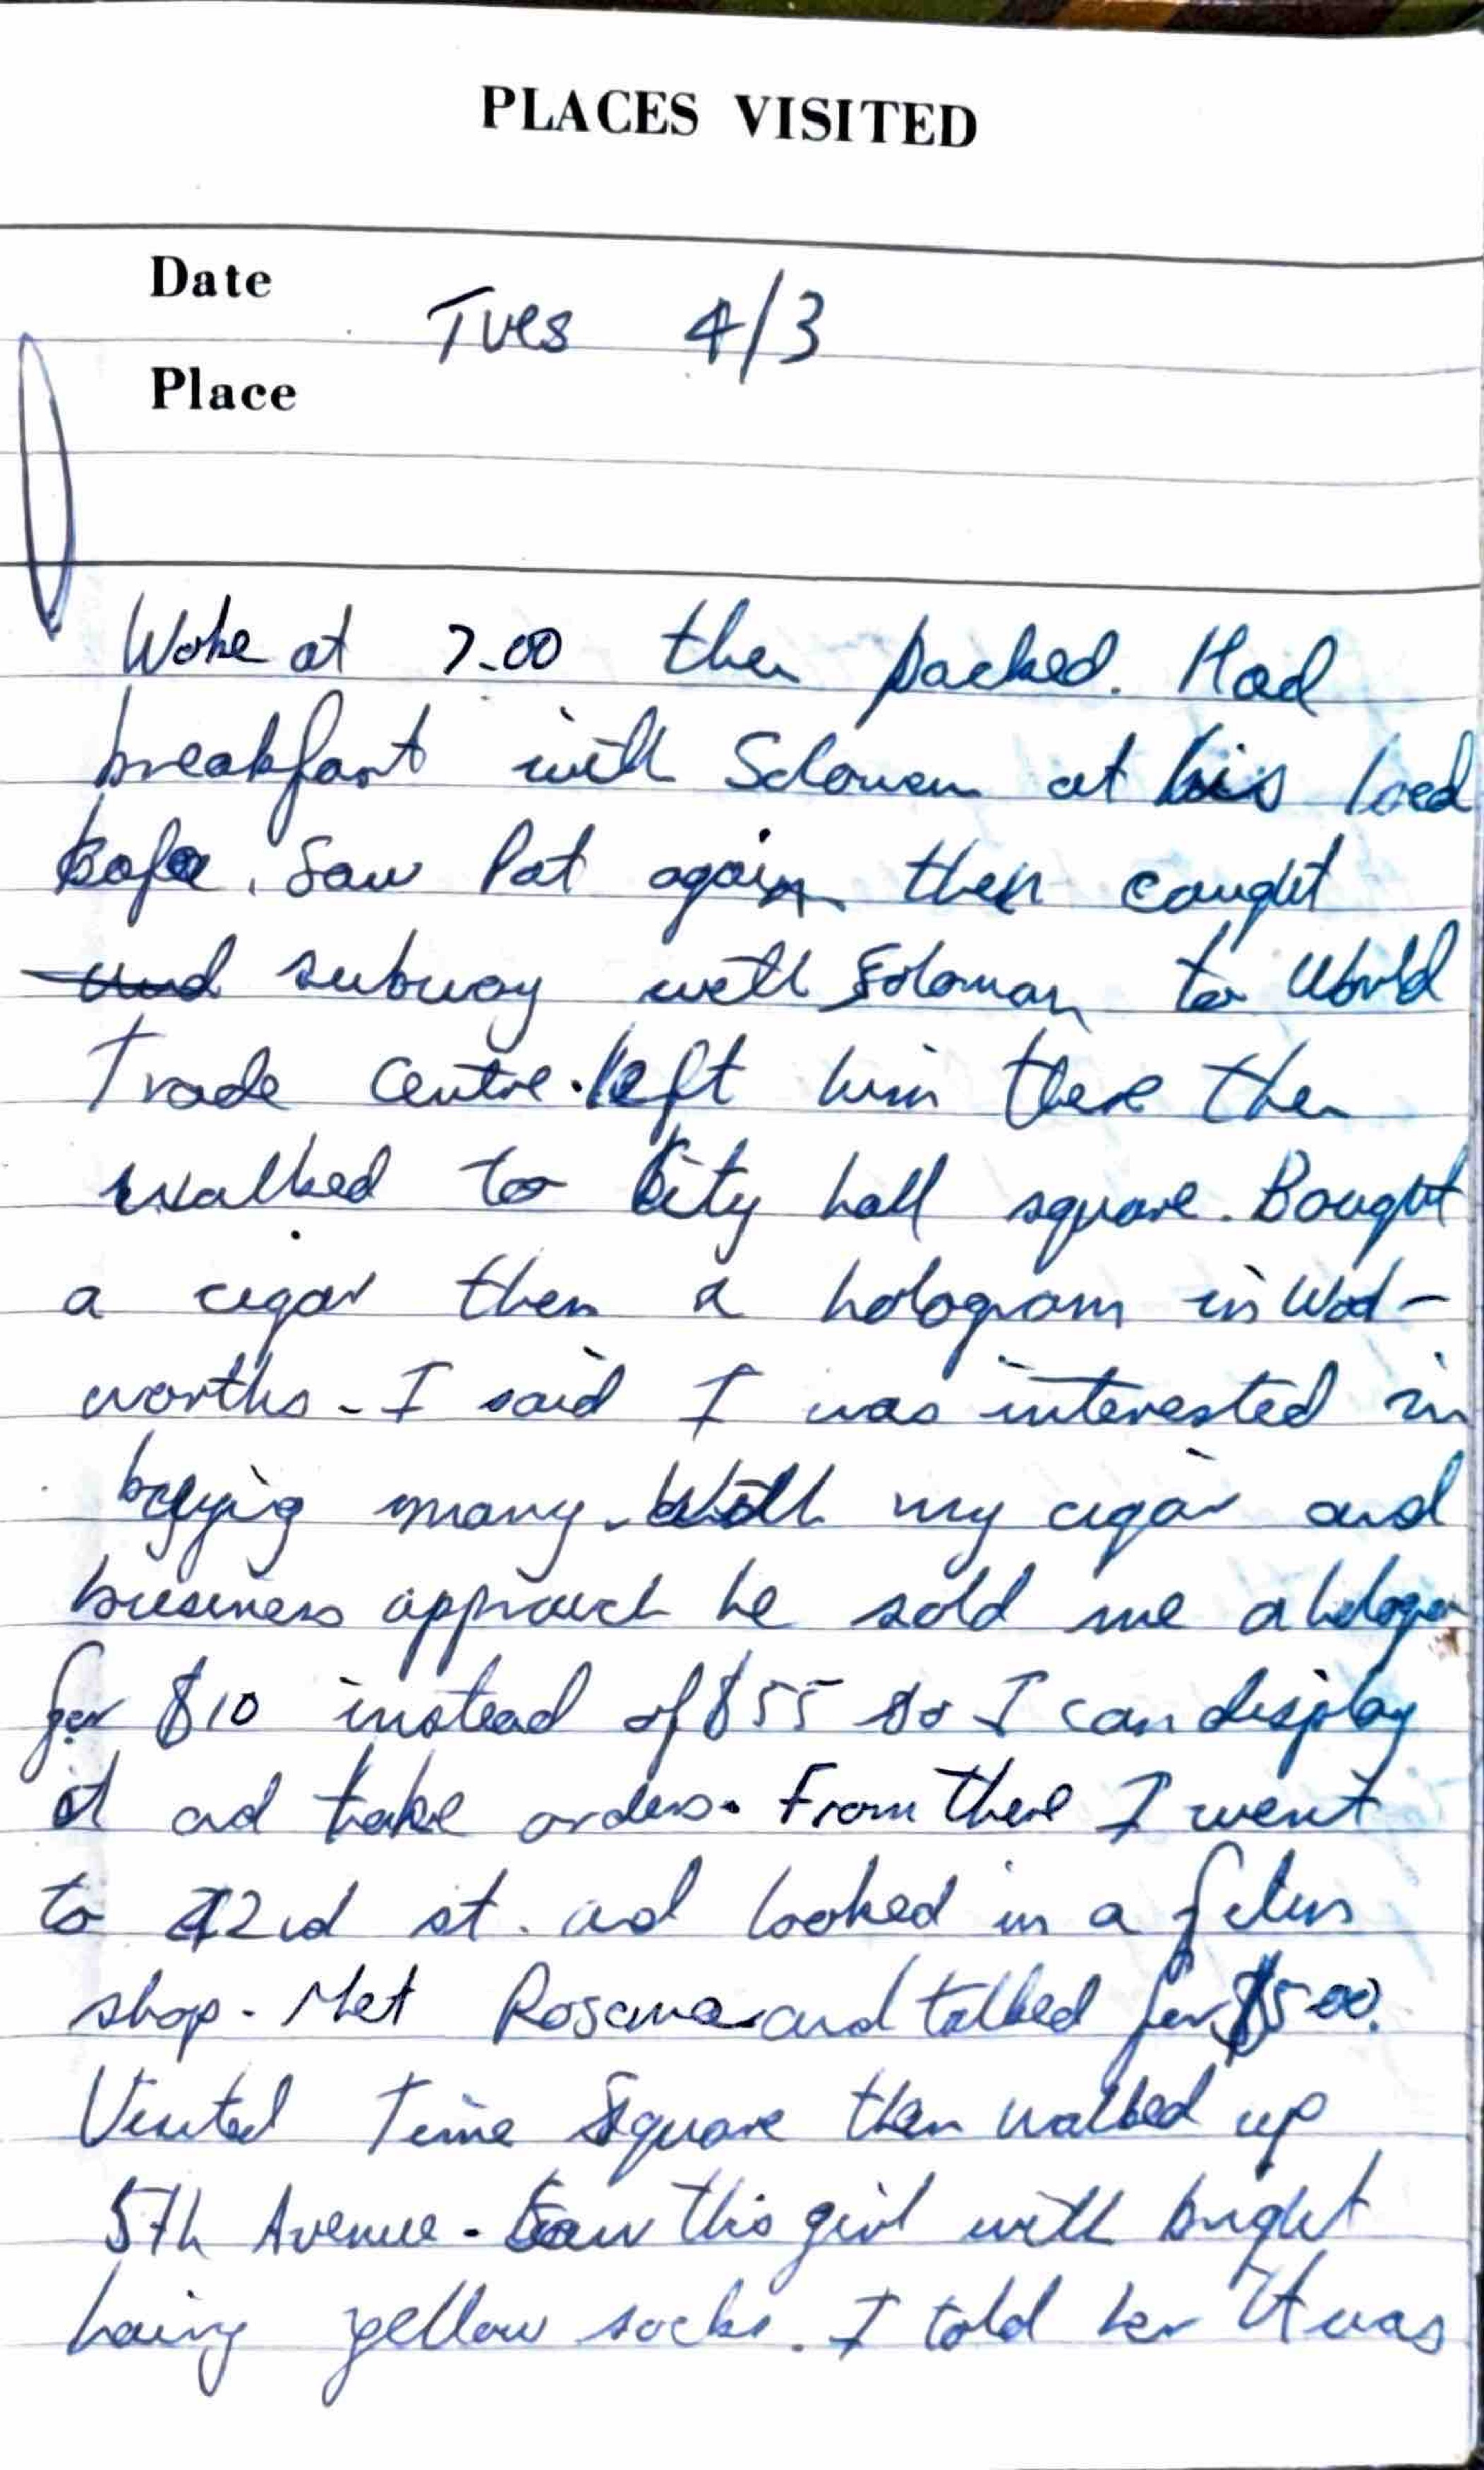 PLACES VISITED
Date Tues 4/3
Place
Woke at 7.00 then packed. Had
breakfast with Soloman at his local
cafe. Saw Pat again then caught
and subway with Soloman to World
Trade Centre. left him there then
walked to City hall square. Bought
a cigar then a hologram in Wool-
worths - I said I was interested in
buying many. With my cigar and
business approach he sold me a hologram
for $10 instead of $55 so I can display
it and take orders. From there I went
to 42nd st. and looked in a film
shop. Met and talked for
Visited Time Square then walked up
5th Avenue. Saw this girl with bright
hairy yellow socks. I told her it was